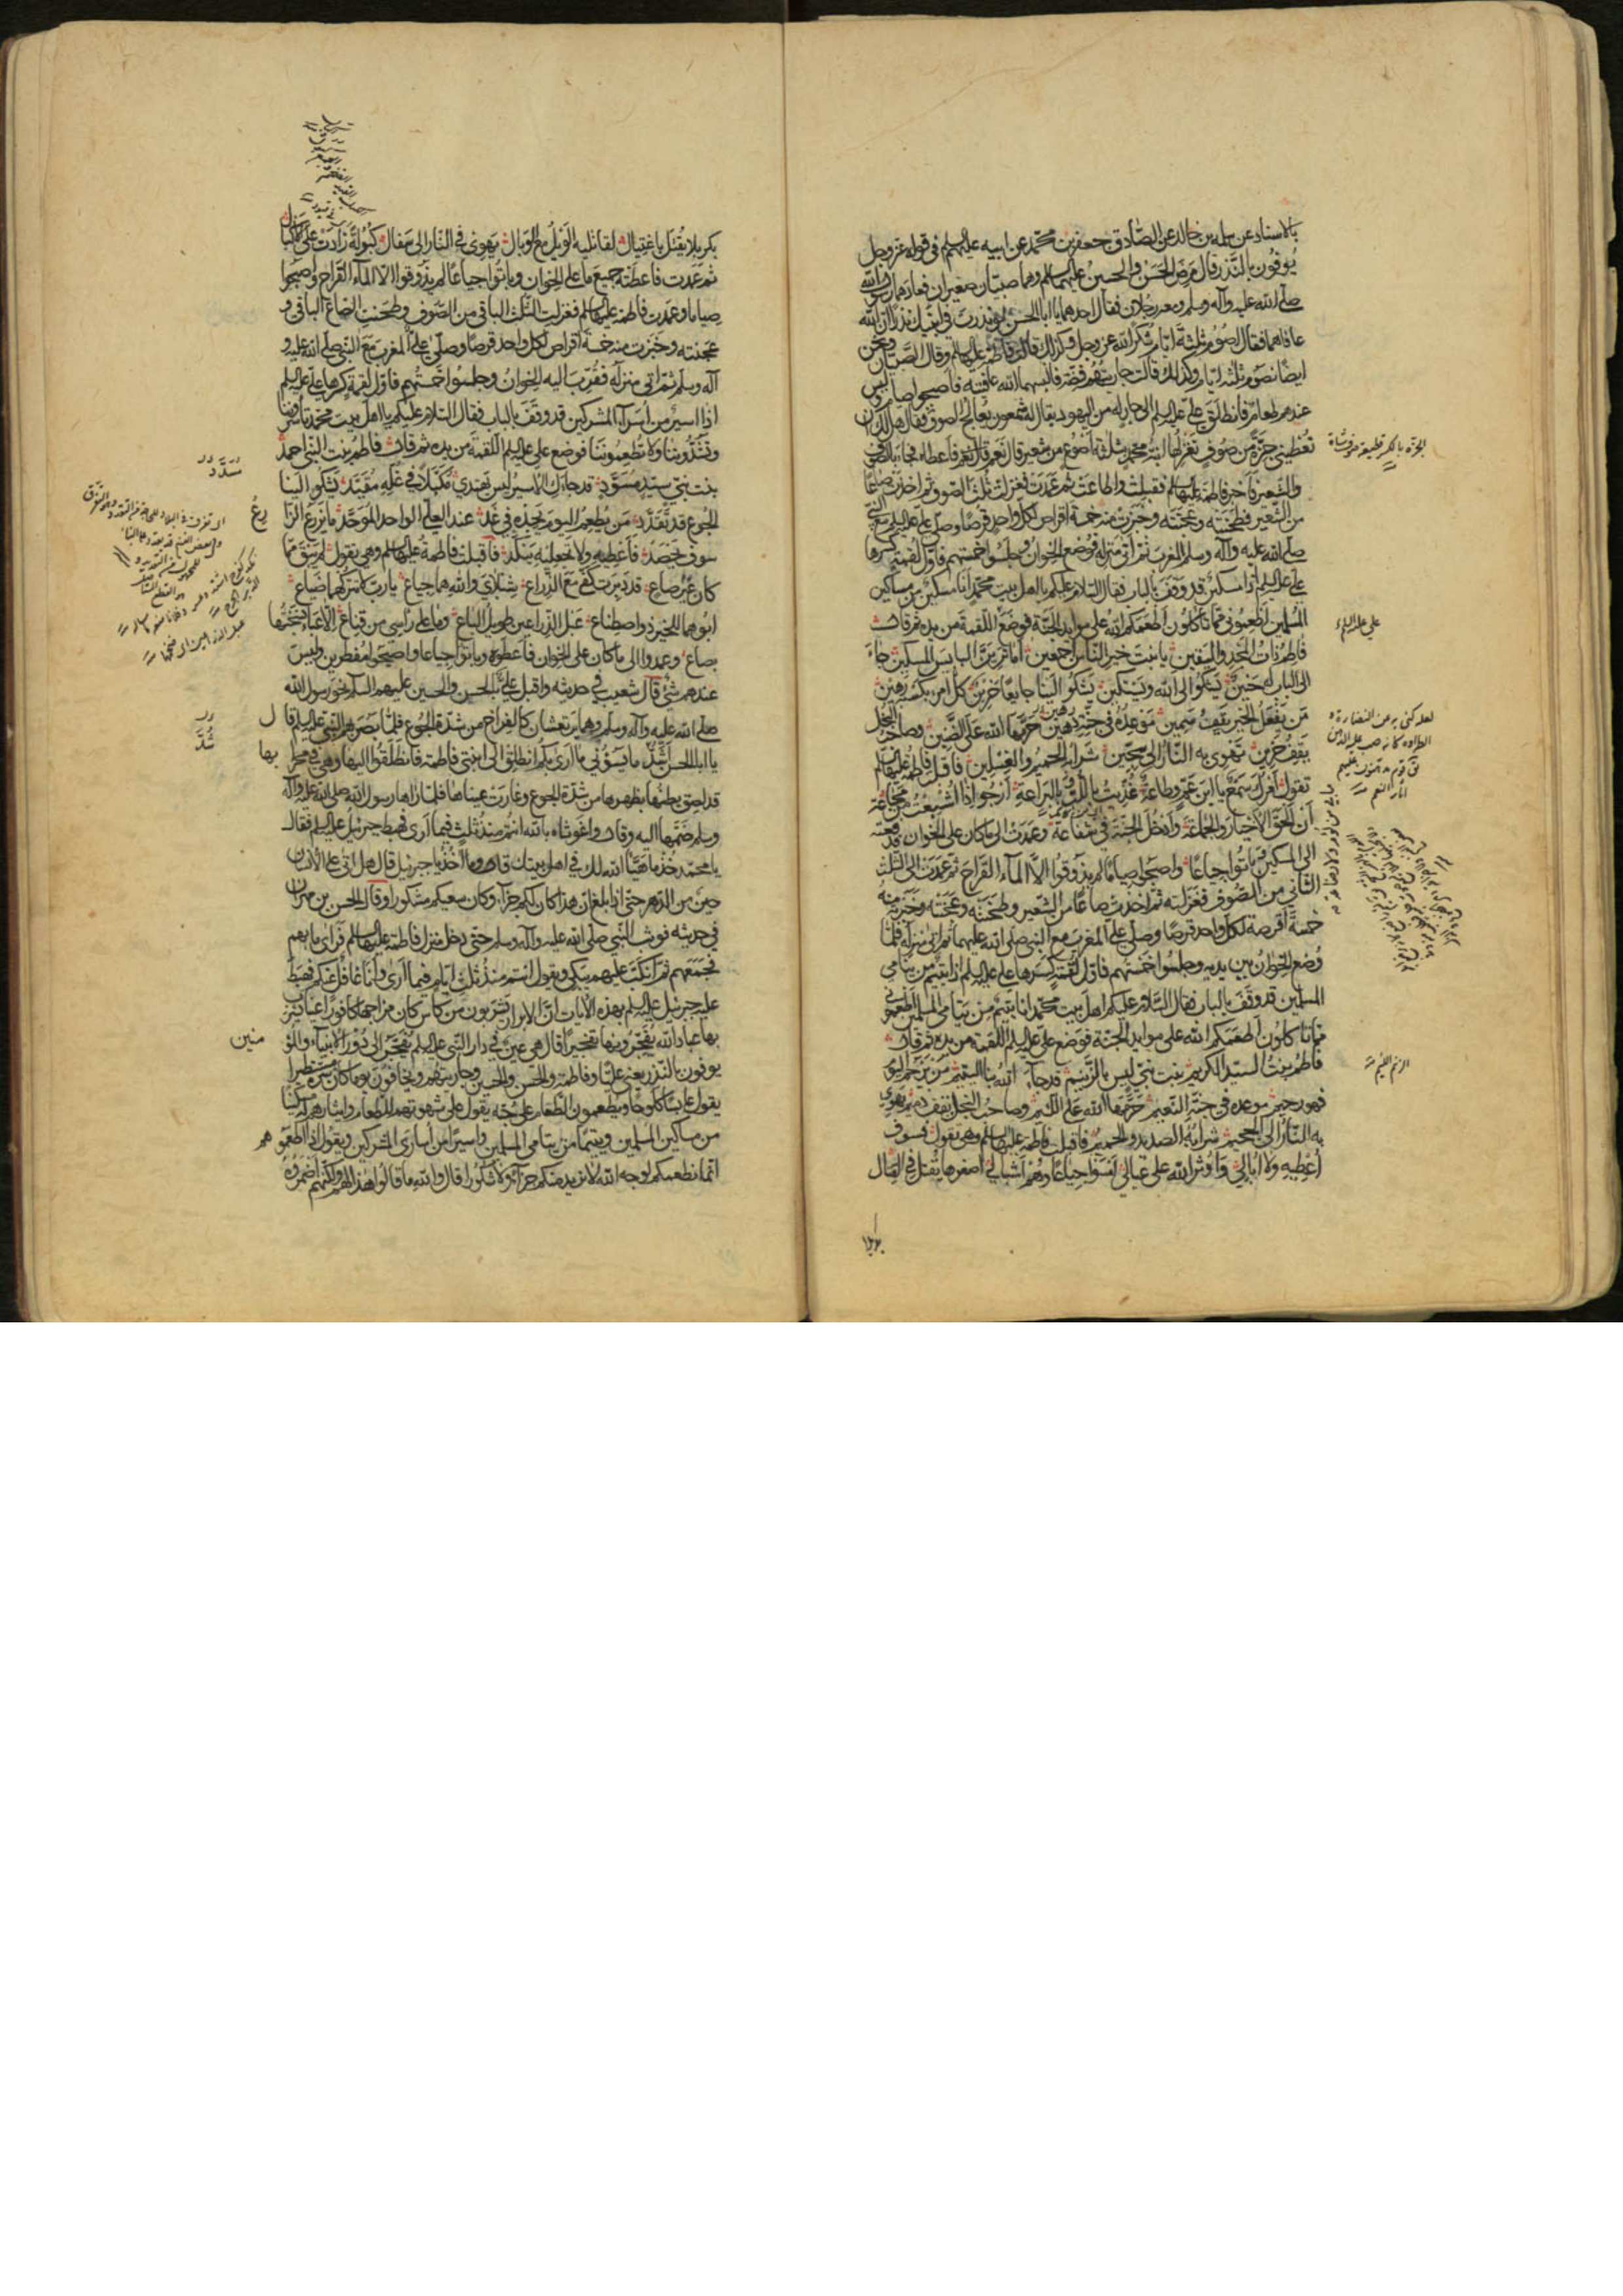 بالاسناد عن سلمه بن خالد عن الصادق جعفر بن محمد عن ابيه عليهم السلم في قوله عز وجل
يوفون بالنذر قال مرض الحسن والحسين عليهما السلم وهما صبيان صغيران فعادهما رسول الله
صلى الله عليه وآله وسلم ومعه رجلان فقال احدهما يا ابا الحسن لو نذرت في ابنيك نذرا ان الله
عافاهما فقال اصوم ثلثة ايام شكرا لله عز وجل وكذلك قالت فاطمة عليها السلم وقال الصبيان ونحن
ايضا نصوم ثلثه ايام وكذلك قالت جاريتهم فضة فالبسهما الله عافيته فاصبحوا صياما وليس
عندهم طعام فانطلق علي عليه السلم الى جار له من اليهود يقال له شمعون يعالج الصوف فقال هل لك ان
تعطيني جزة من صوف تغزلها ابنة محمد بثلثة اصوع من شعير قال نعم فاعطاه فجاء بالصوف
والشعير فاخبر فاطمة عليها السلم فقبلت واطاعت ثم عمدت فغزلت ثلث الصوف ثم اخذت صاعا
من الشعير فطحنته وعجنته وخبزت منه خمسة اقراص لكل واحد قرصا وصلى علي عليه السلم مع النبي
صلى الله عليه وآله وسلم المغرب ثم اتى منزله فوضع الخوان وجلسوا خمستهم فاول لقمة كسرها
علي عليه السلم اذا مسكين قد وقف بالباب فقال السلام عليكم يا اهل بيت محمد انا مسكين من مساكين
المسلمين اطعموني مما تاكلون اطعمكم الله على موايد الجنة فوضع اللقمة من يده ثم قال
فاطم ذات المجد واليقين يا بنت خير الناس اجمعين اما ترين البايس المسكين جاء
الى الباب له حنين يشكو الى الله ويستكين يشكو الينا جايعا حزين كل امرء بكسبه رهين
من يفعل الخير يقف سمين موعده في جنة دهين حرمها الله على الضنين وصاحب البخل
يقف حزين تهوى به النار الى سجين شرابه الحميم والغسلين فاقبلت فاطمة عليها السلم
تقول امرك سمع يا ابن عم وطاعة غذيت باللب وبالبراعة ارجو اذا اشبعت من مجاعة
ان الحق الاخيار والجماعة وادخل الجنة في شفاعة وعمدت الى ما كان على الخوان فدفعته
الى المسكين وباتوا جياعا واصبحوا صياما لم يذوقوا الا الماء القراح ثم عمدت الى الثلث
الثاني من الصوف فغزلته ثم اخذت صاعا من الشعير وطحنته وعجنته وخبزت منه
خمسة اقرصة لكل واحد قرصا وصلى علي المغرب مع النبي صلى الله عليهما ثم اتى منزله فلما
وضع الخوان بين يديه وجلسوا خمستهم فاول لقمة كسرها علي عليه السلم اذا يتيم من يتامى
المسلمين قد وقف بالباب فقال السلام عليكم اهل بيت محمد انا يتيم من يتامى المسلمين اطعموني
مما تاكلون اطعمكم الله على موايد الجنة فوضع علي عليه السلم اللقمة من يده ثم قال
فاطم بنت السيد الكريم بنت نبي ليس بالزنيم قد جاء الله بذا اليتيم من يرحم اليوم
فهو رحيم موعده في جنة النعيم حرمها الله على اللئيم وصاحب البخل يقف ذميم تهوي
به النار الى الجحيم شرابه الصديد والحميم فاقبلت فاطمة عليها السلم وهي تقول فسوف
اعطيه ولا ابالي واوثر الله على عيالي امسوا جياعا وهم اشبالي اصغرهما يقتل في القتال
علي عليه السلم
بكربلا يقتل باغتيال لقاتليه الويل مع الوبال يهوي في النار الى سفال كبوله زادت على الاكبال
ثم عمدت فاعطته جميع ما على الخوان وباتوا جياعا لم يذوقوا الا الماء القراح واصبحوا
صياما وعمدت فاطمة عليها السلم فغزلت الثلث الباقي من الصوف وطحنت الصاع الباقي و
عجنته وخبزت منه خمسة اقراص لكل واحد قرصا وصلى علي المغرب مع النبي صلى الله عليه و
آله وسلم ثم اتى منزله فقرب اليه الخوان وجلسوا خمستهم فاول لقمة كسرها علي عليه السلم
اذا اسير من اسراء المشركين قد وقف بالباب فقال السلام عليكم يا اهل بيت محمد تأسروننا
وتشدوننا ولا تطعموننا فوضع علي عليه السلم اللقمة من يده ثم قال فاطم بنت النبي احمد
بنت نبي سيد مسود قد جاءك الاسير ليس يهتدي مكبلا في غله مقيد يشكو الينا
الجوع قد تقدد من يطعم اليوم يجده في غد عند العلي الواحد الموحد ما يزرع الزارع
سوف يحصد فاعطيه ولا تجعليه ينكد فاقبلت فاطمة عليها السلم وهي تقول لم يبق مما
كان غير صاع قد دبرت كفي مع الذراع شبلاي والله هما جياع يا رب لا تتركهما ضياع
ابوهما للخير ذو اصطناع عبل الذراعين طويل الباع وما على راسي من قناع الا عبا نسجتها
بصاع وعمدوا الى ما كان على الخوان فاعطوه وباتوا جياعا واصبحوا مفطرين وليس
عندهم شئ قال شعيب في حديثه واقبل علي بالحسن والحسين عليهم السلم نحو رسول الله
صلى الله عليه وآله وسلم وهما يرتعشان كالفراخ من شدة الجوع فلما بصر بهم النبي عليه السلم قال
يا ابا الحسن شد ما يسوؤني ما ارى بكم انطلق الى ابنتي فاطمة فانطلقوا اليها وهي في محرابها
قد لصق بطنها بظهرها من شدة الجوع وغارت عيناها فلما رآها رسول الله صلى الله عليه وآله
وسلم ضمها اليه وقال واغوثاه بالله انتم منذ ثلث فيما ارى فهبط جبرئيل عليه السلم فقال
يا محمد خذ ما هيأ الله لك في اهل بيتك قال وما آخذ يا جبرئيل قال هل اتى على الانسان
حين من الدهر حتى اذا بلغ ان هذا كان لكم جزاء وكان سعيكم مشكورا وقال الحسن بن مهران
في حديثه فوثب النبي صلى الله عليه وآله وسلم حتى دخل منزل فاطمة عليها السلم فرأى ما بهم
فجمعهم ثم انكب عليهم يبكي ويقول انتم منذ ثلث ايام فيما ارى وانا غافل عنكم فهبط
عليه جبرئيل عليه السلم بهذه الآيات ان الابرار يشربون من كاس كان مزاجها كافورا عينا يشرب
بها عباد الله يفجرونها تفجيرا قال هي عين في دار النبي عليه السلم تفجر الى دور الانبياء والمؤ
منين
يوفون بالنذر يعني عليا وفاطمة والحسن والحسين وجاريتهم ويخافون يوما كان شره مستطيرا
يقول عابسا كلوحا ويطعمون الطعام على حبه يقول على شهوتهم للطعام وايثارهم له مسكينا
من مساكين المسلمين ويتيما من يتامى المسلمين واسيرا من اسارى المشركين ويقولون اذا اطعموهم
انما نطعمكم لوجه الله لا نريد منكم جزاء ولا شكورا قال والله ما قالوا هذا لهم ولكنهم اضمروه